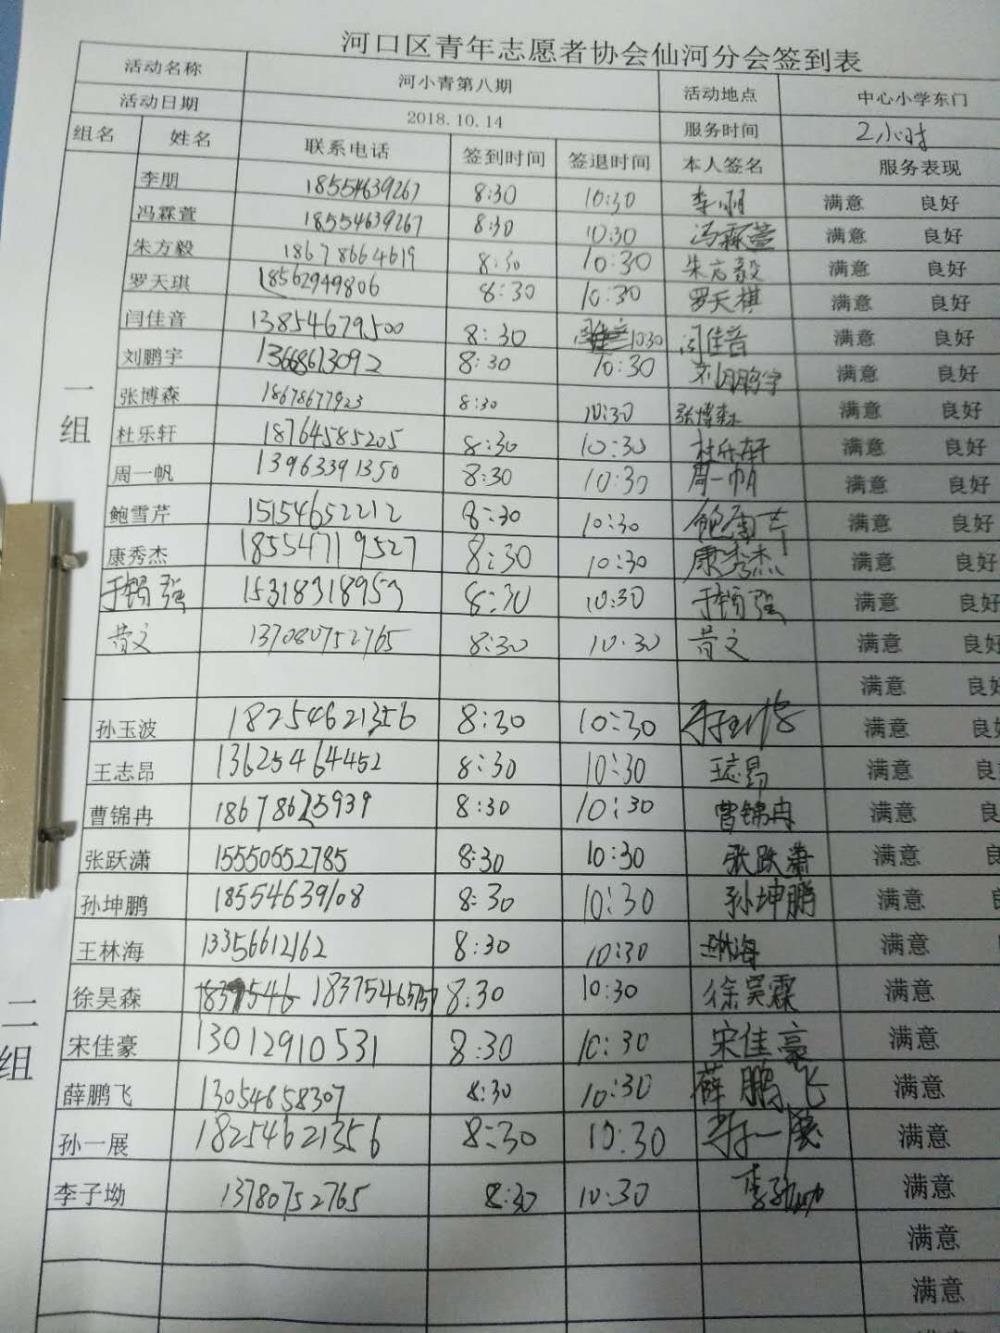 河口区青年志愿者协会仙河分会签到表
活动名称 河小青第八期 活动地点 中心小学东门
活动日期 2018.10.14 服务时间 2小时
组名 姓名 联系电话 签到时间 签退时间 本人签名 服务表现
一组
李朋 18554639267 8:30 10:30 李朋 满意 良好
冯霖萱 18554639267 8:30 10:30 冯霖萱 满意 良好
朱方毅 18678664619 8:30 10:30 朱方毅 满意 良好
罗天琪 18562949806 8:30 10:30 罗天棋 满意 良好
闫佳音 13854679500 8:30 10:30 闫佳音 满意 良好
刘鹏宇 13668613092 8:30 10:30 刘鹏宇 满意 良好
张博森 18678677923 8:30 10:30 张博森 满意 良好
杜乐轩 18764585205 8:30 10:30 杜乐轩 满意 良好
周一帆 13963391350 8:30 10:30 周一帆 满意 良好
鲍雪芹 15154652212 8:30 10:30 鲍雪芹 满意 良好
康秀杰 18554719527 8:30 10:30 康秀杰 满意 良好
于锡强 15318318953 8:30 10:30 于锡强 满意 良好
昔文 137080752765 8:30 10:30 昔文 满意 良好
满意 良好
二组
孙玉波 18254621356 8:30 10:30 满意 良
王志昂 13625464452 8:30 10:30 王志昂 满意 良
曹锦冉 18678625939 8:30 10:30 曹锦冉 满意 良
张跃潇 15550552785 8:30 10:30 张跃潇 满意 良
孙坤鹏 18554639108 8:30 10:30 孙坤鹏 满意
王林海 13356612162 8:30 10:30 王林海 满意
徐昊森 18375465757 8:30 10:30 徐昊霖 满意
宋佳豪 13012910531 8:30 10:30 宋佳豪 满意
薛鹏飞 13054658307 8:30 10:30 薛鹏飞 满意
孙一展 18254621356 8:30 10:30 孙一展 满意
李子坳 13780752765 8:30 10:30 李子坳 满意
满意
满意